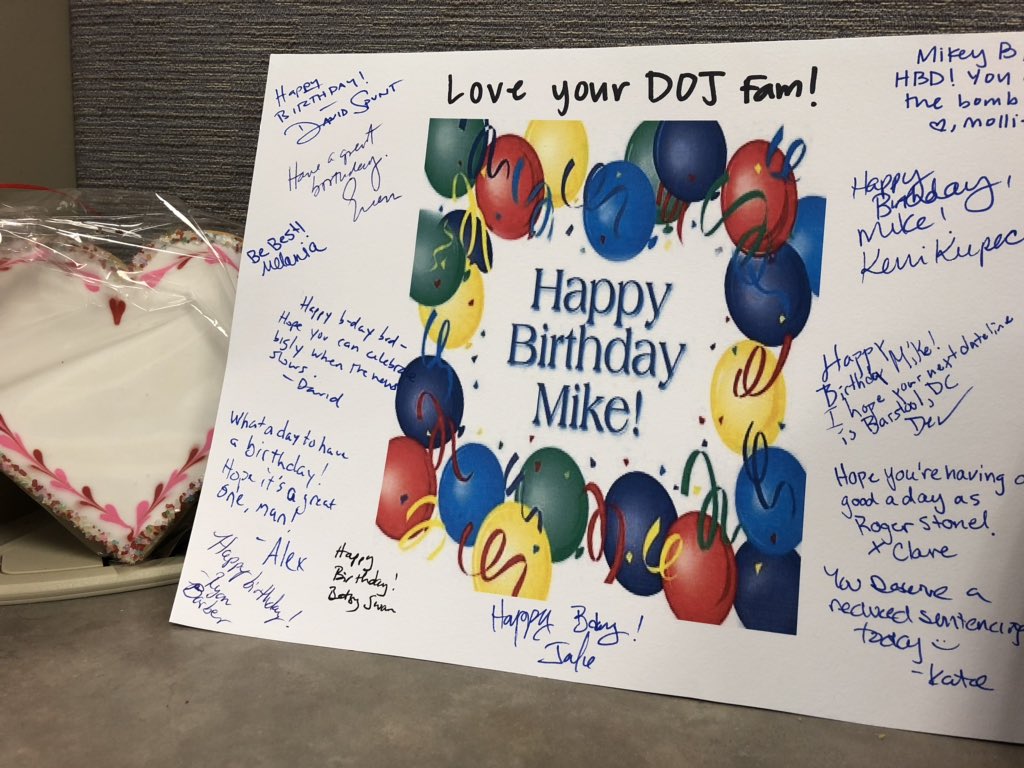 Love your DOJ Fam!
HAPPY
BIRTHDAY!
DAVID SPUNT
Have a great
birthday.
Evan
BE BEST!
Melania
Happy b-day bud-
Hope you can celebrate
bigly when the news
slows.
- David
What a day to have
a birthday!
Hope it's a great
one, man!
- Alex
Happy birthday!
Ryan
Happy
Birthday!
Betsy Swan
Happy
Birthday
Mike!
Happy Bday!
Mikey B
HBD! You
the bomb
♡, Molli-
Happy
Birthday,
Mike!
Kerri Kupec
Happy
Birthday Mike!
I hope your next dateline
is Barstool, DC
Dev
Hope you're having a
good a day as
Roger Stone!
x Clare
You Deserve a
reduced sentencing
today